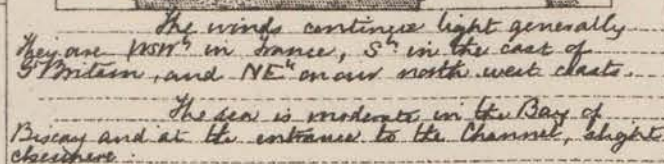 The winds continue light generally
They are WSWʸ in France, Sʸ in the east of
Gᵗ Britain, and NEʸ on our north west coasts.
The sea is moderate in the Bay of
Biscay and at the entrance to the Channel, slight
elsewhere.